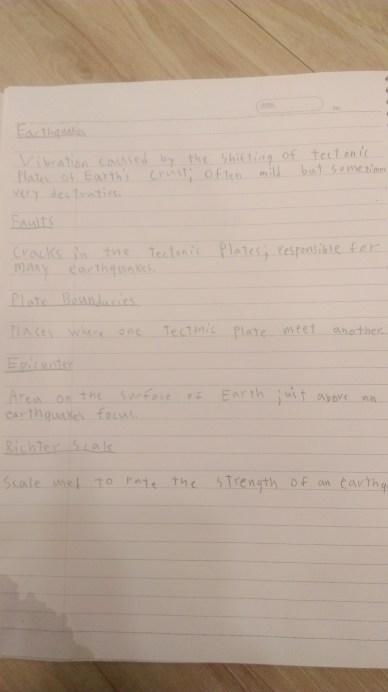 Earthquakes
Vibration caused by the shifting of tectonic
Plates of Earth's Crust; Often mild but sometimes
very destructive.
Faults
Cracks in the Tectonic Plates; responsible for
many earthquakes.
Plate Boundaries
Places where one Tectonic Plate meet another
Epicenter
Area on the surface of Earth just above an
earthquakes focus.
Richter Scale
Scale used To rate the strength of an earthq